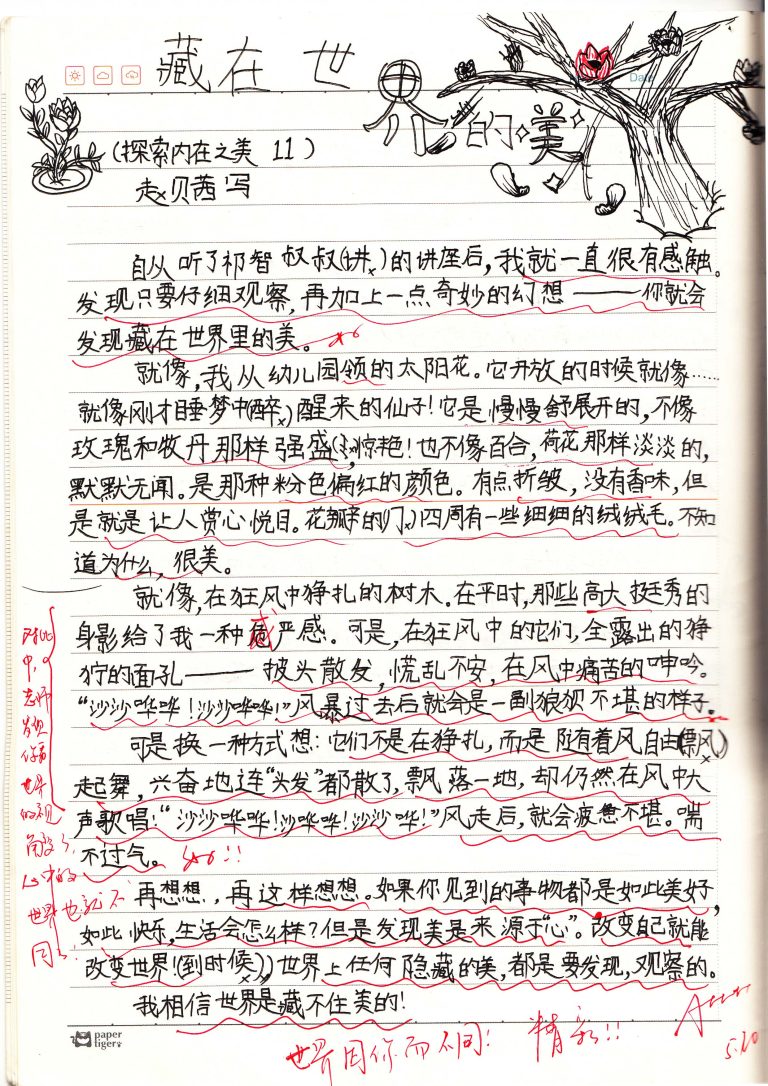 藏在世界的美
Date
(探索内在之美 11)
赵贝茜 写
自从听了祁智叔叔(讲)的讲座后,我就一直很有感触。
发现只要仔细观察,再加上一点奇妙的幻想——你就会
发现藏在世界里的美。
就像,我从幼儿园领的太阳花。它开放的时候就像……
就像刚才睡梦中(醉)醒来的仙子!它是慢慢舒展开的,不像
玫瑰和牧丹那样强盛,惊艳!也不像百合,荷花那样淡淡的,
默默无闻。是那种粉色偏红的颜色。有点折皱,没有香味,但
是就是让人赏心悦目。花瓣的(门)四周有一些细细的绒绒毛。不知
道为什么,很美。
就像,在狂风中狰扎的树木。在平时,那些高大挺秀的
身影给了我一种威严感。可是,在狂风中的它们,全露出的狰
狞的面孔——披头散发,慌乱不安,在风中痛苦的呻吟。
“沙沙哗哗!沙沙哗哗!”风暴过去后就会是一副狼狈不堪的样子。
可是换一种方式想:它们不是在狰扎,而是随着风自由(飘)
起舞,兴奋地连“头发”都散了,飘落一地,却仍然在风中大
声歌唱:“沙沙哗哗!沙哗哗!沙沙哗!”风走后,就会疲惫不堪。喘
不过气。
再想想,再这样想想。如果你见到的事物都是如此美好,
如此快乐,生活会怎么样?但是发现美是来源于“心”。改变自己就能
改变世界!(到时候),世界上任何隐藏的美,都是要发现,观察的。
我相信世界是藏不住美的!
老师
发现
你看
世界
的视
角变了,
心中的
世界也就不
同了!
世界因你而不同!精彩!!
5.20
paper
tiger